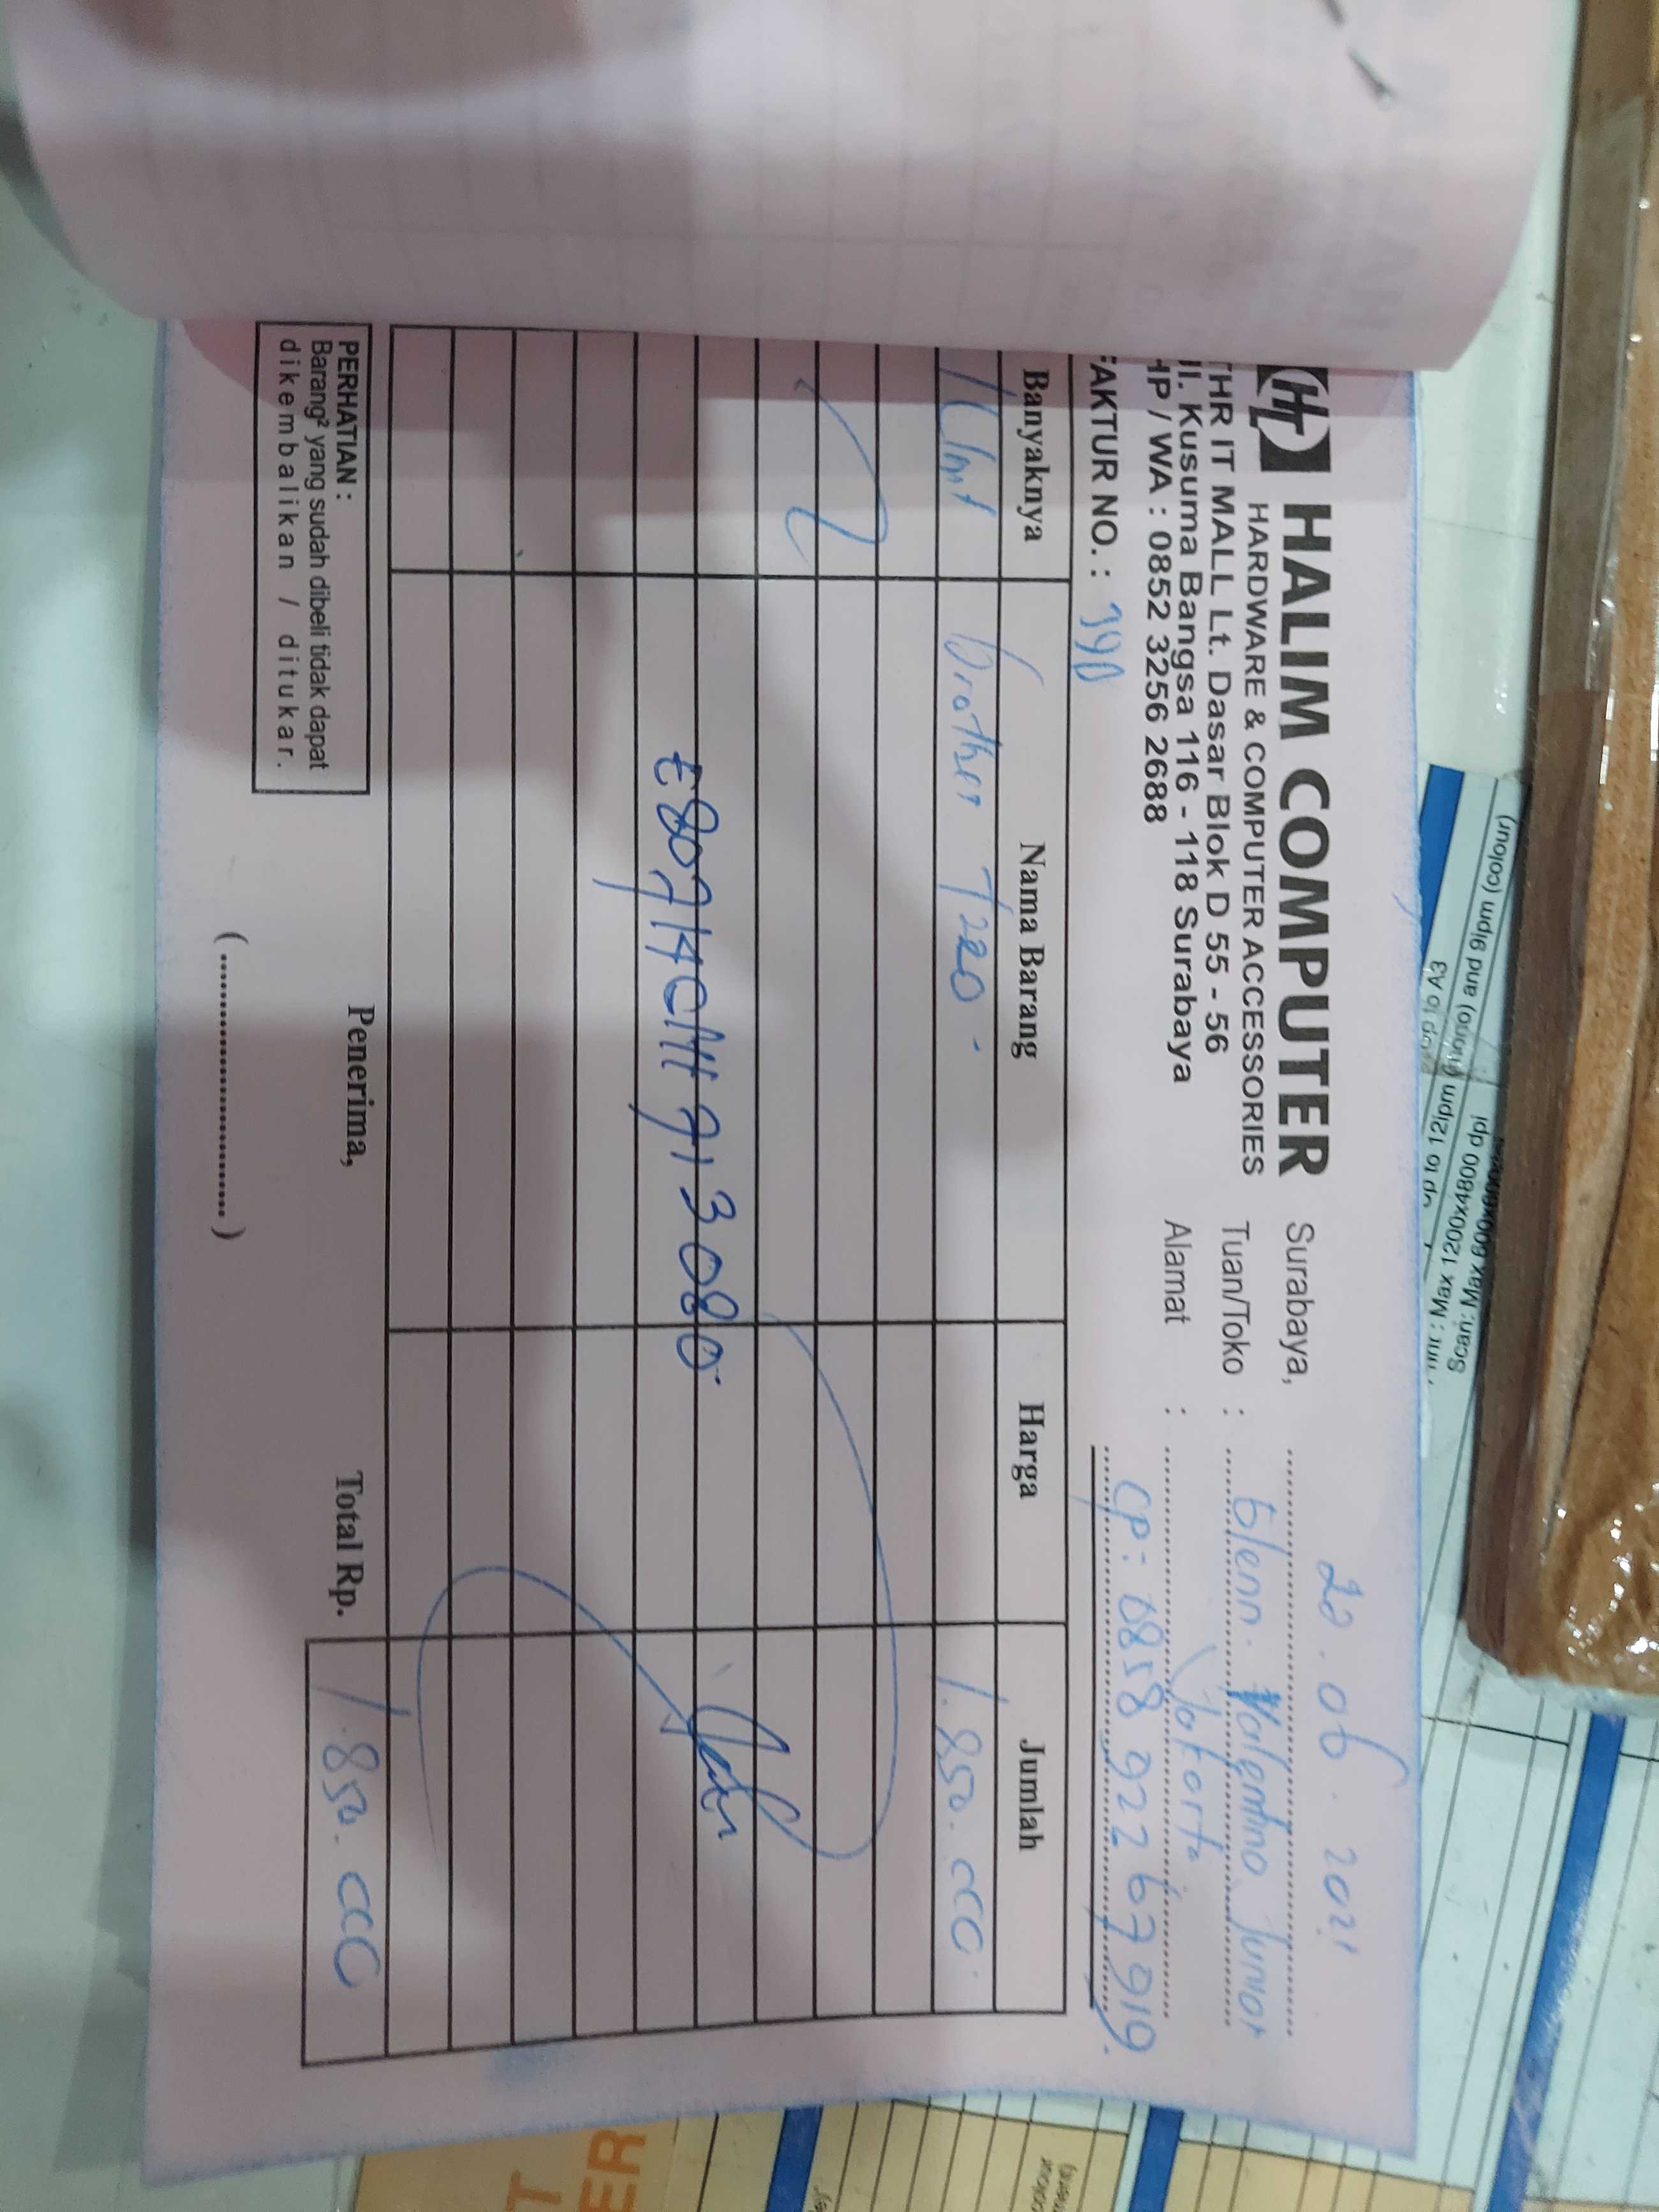 HALIM COMPUTER
HARDWARE & COMPUTER ACCESSORIES
THR IT MALL Lt. Dasar Blok D 55 - 56
Jl. Kusuma Bangsa 116 - 118 Surabaya
HP / WA : 0852 3256 2688
FAKTUR NO. :
Surabaya, 20.06.2021
Tuan/Toko : Glenn. Valentino Junior
Alamat : Jakarta
CP: 0858 922 67919.
Banyaknya Nama Barang Harga Jumlah
1 Unit Brother T220. 1.850.000
E80714C1H913080
PERHATIAN :
Barang² yang sudah dibeli tidak dapat
dikembalikan / ditukar.
Penerima,
(....................)
Total Rp. 1.850.000
Scan: Max 600x600
Max 1200x4800 dpi
up to 12ipm (mono) and 9ipm (colour)
up to A3